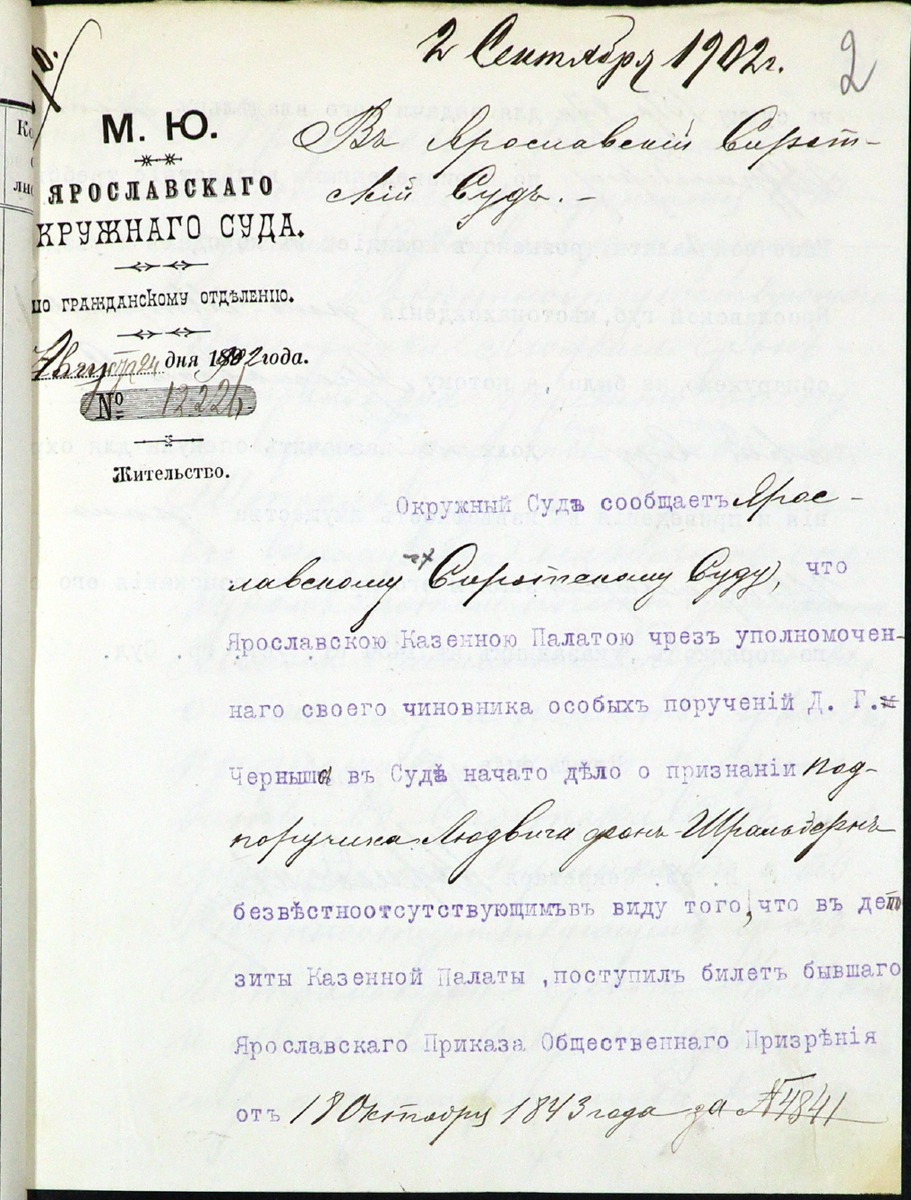 2 Сентября 1902 г.
2
М. Ю.
ЯРОСЛАВСКАГО
КРУЖНАГО СУДА.
ПО ГРАЖДАНСКОМУ ОТДѢЛЕНІЮ.
Августа 24 дня 1902 года.
№ 12226
Жительство.
Въ Ярославскій Сирот-
скій Судъ. -
Окружный Судъ сообщаетъ Яро-
славскому Сиротскому Суду, что
Ярославскою Казенною Палатою чрезъ уполномочен-
наго своего чиновника особыхъ порученій Д. Г.
Черныша въ Судѣ начато дѣло о признаніи под-
поручика Людвига фонъ-
безвѣстноотсутствующимъвъ виду того, что въ депо
зиты Казенной Палаты ,поступилъ билетъ бывшаго
Ярославскаго Приказа Общественнаго Призрѣнія
отъ 18 Октября 1843 года за № 4841